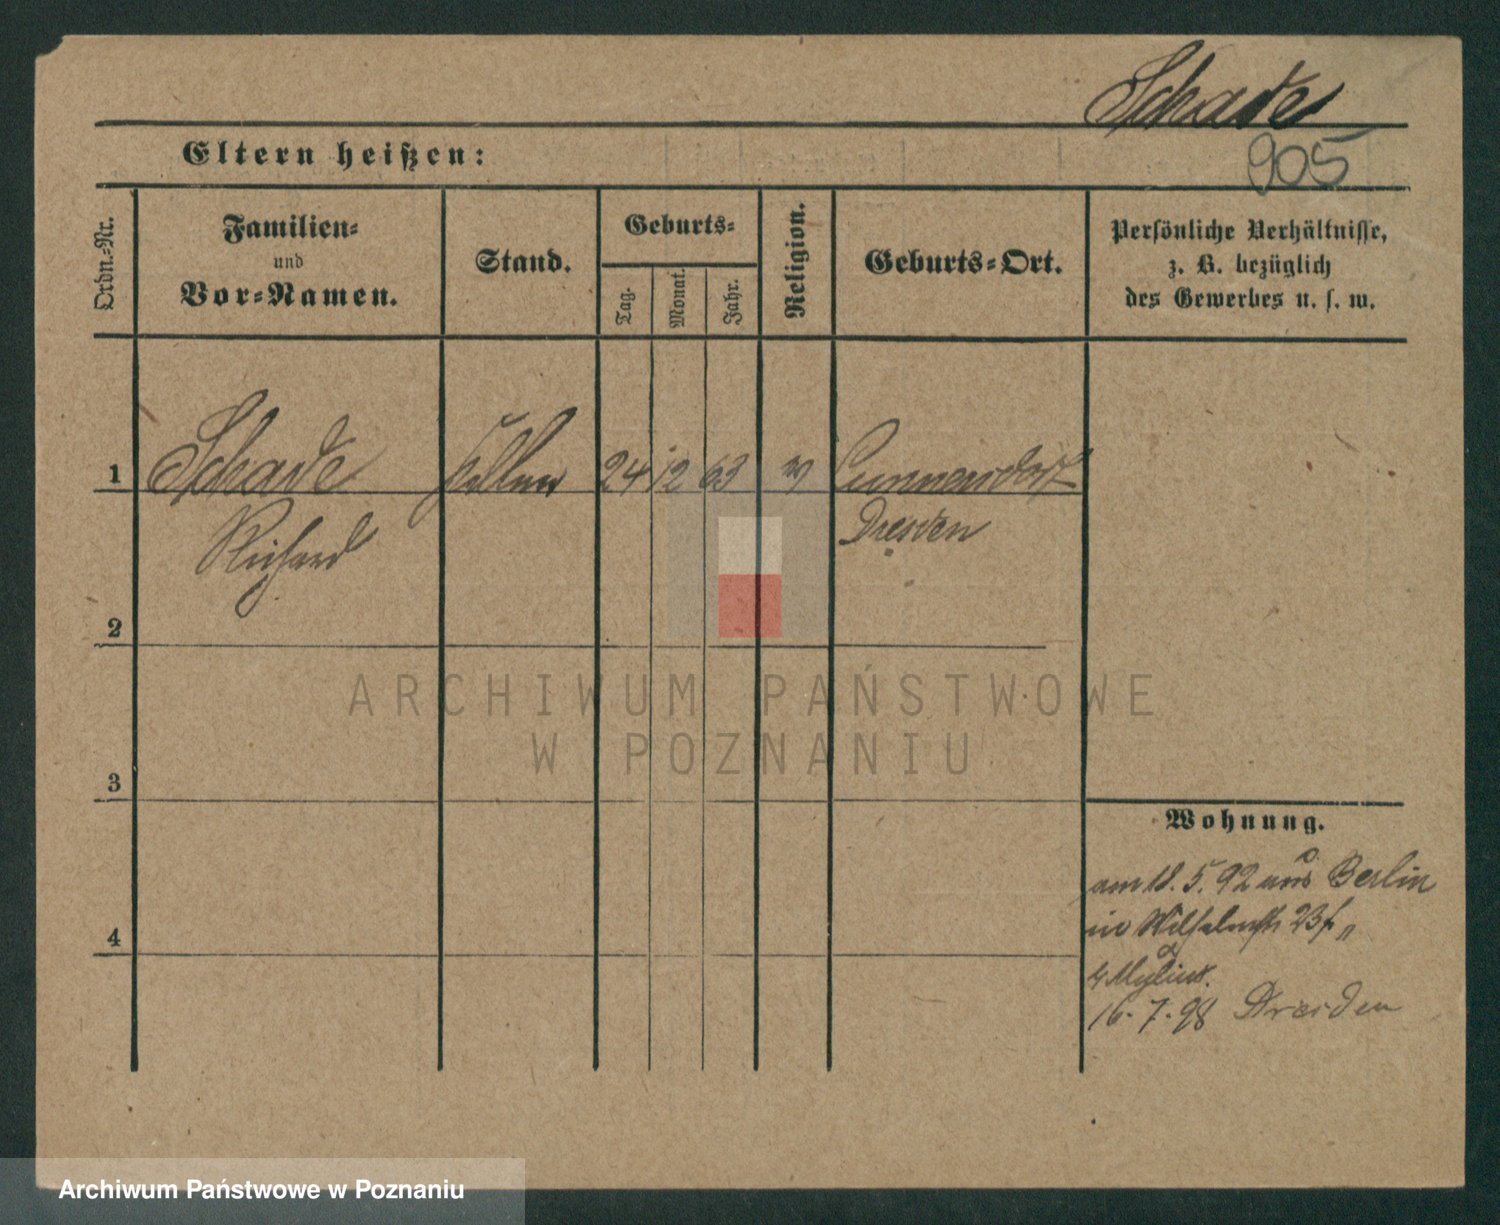 Schade
905
Eltern heißen:
Ordn.-Nr.
Familien-
und
Vor-Namen.
Stand.
Geburts-
Tag.
Monat.
Jahr.
Religion.
Geburts-Ort.
Persönliche Verhältnisse,
z. B. bezüglich
des Gewerbes u. s. w.
1 Schade Kellner 24 12 63 Cunnersdorf
Richard Dresden
2
3
4
Wohnung.
am 18. 5. 92 aus Berlin
in Wilhelmstr 23 f.
b Mylius.
16. 7. 98 Dresden
ARCHIWUM PAŃSTWOWE
W POZNANIU
Archiwum Państwowe w Poznaniu